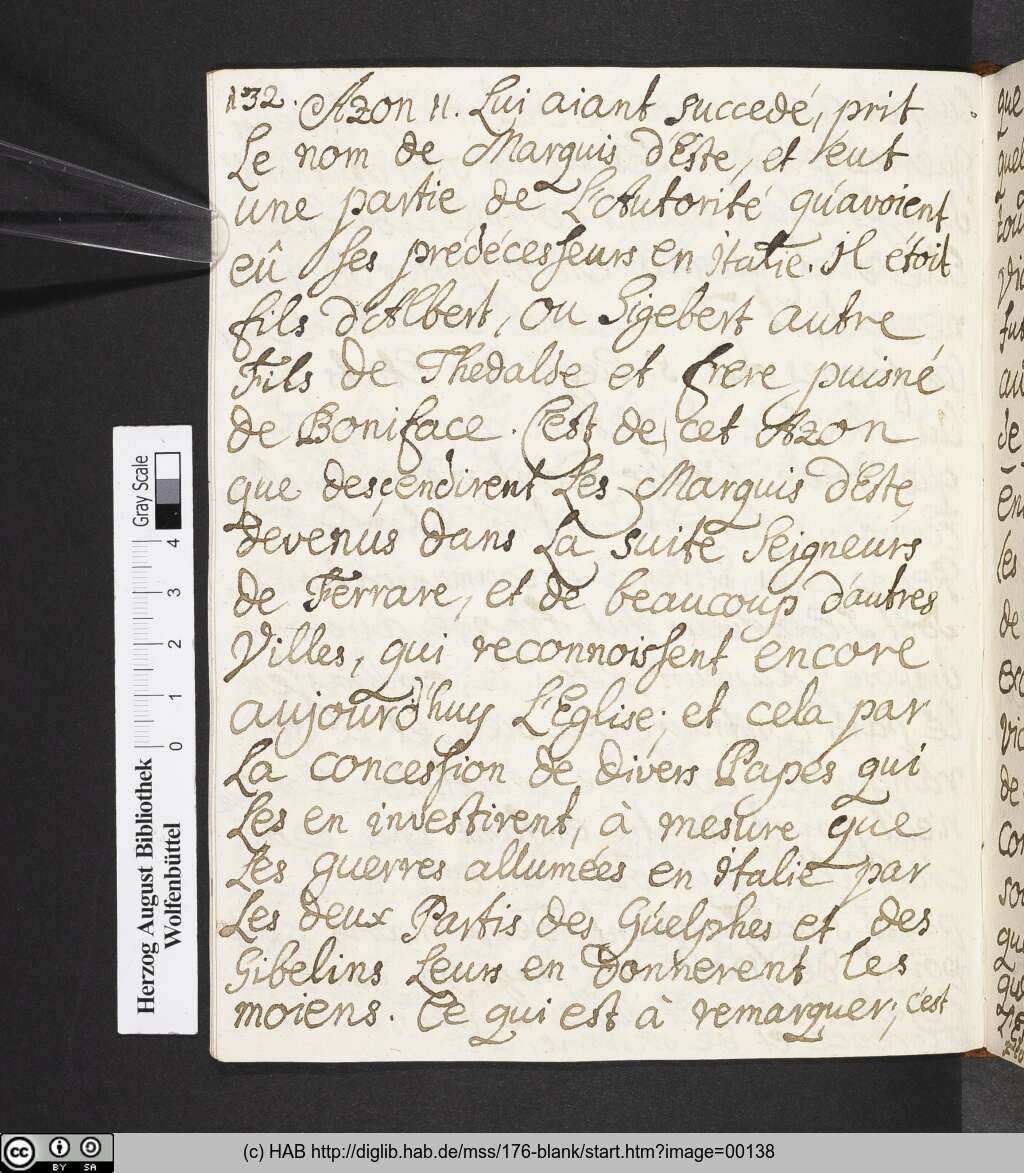 132. Azon II. Lui aiant succedé, prit
Le nom de Marquis d'Este, et eut
une partie de L'Autorité qu'avoient
eû ses prédécesseurs en italie. il étoit
fils d'Albert, ou Sigebert autre
Fils de Thedalde et frere puisné
de Boniface. C'est de cet Azon
que descendirent Les Marquis d'Este,
devenus dans La suite Seigneurs
de Ferrare, et de beaucoup d'autres
Villes, qui reconnoissent encore
aujourd'huy L'Eglise; et cela par
La concession de divers Papes qui
Les en investirent, à mesure que
Les guerres allumées en italie par
Les deux Partis des Guelphes et des
Gibelins Leurs en donnerent les
moiens. Ce qui est à remarquer; c'est
Herzog August Bibliothek
Wolfenbüttel
Gray Scale
0 1 2 3 4
cc BY SA
(c) HAB http://diglib.hab.de/mss/176-blank/start.htm?image=00138